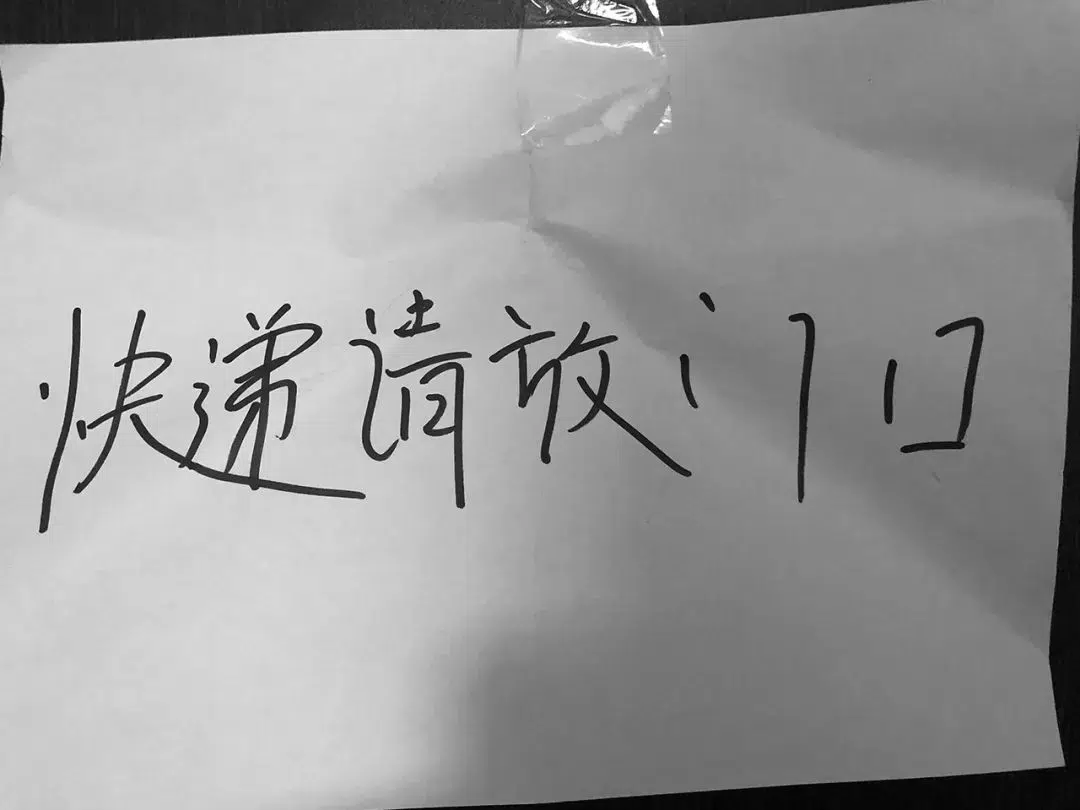 快递请放门口